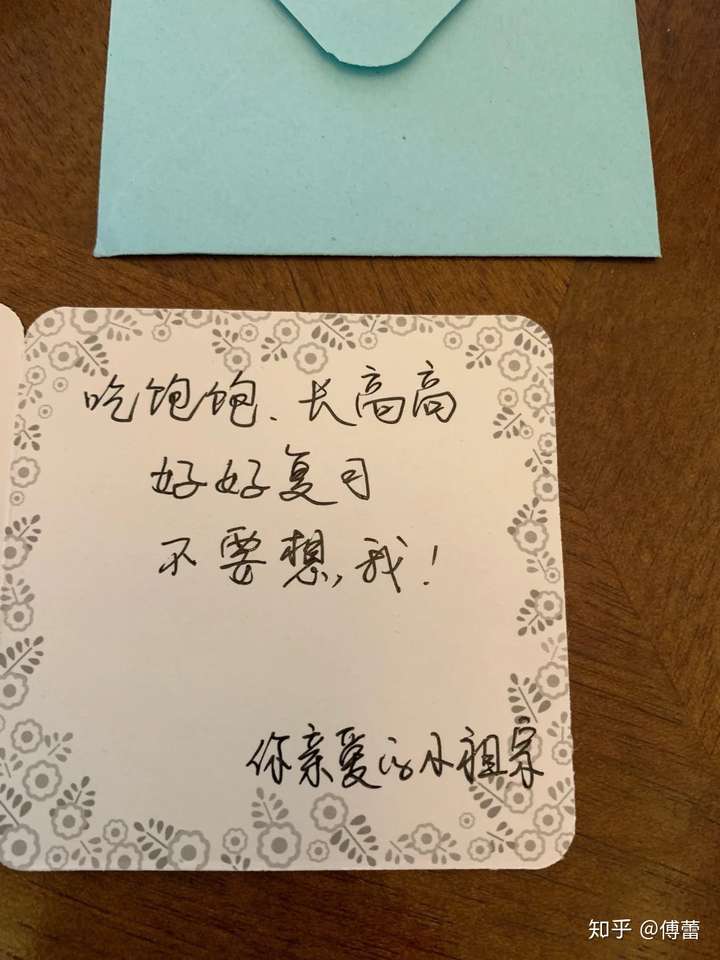 吃饱饱、长高高
好好复习
不要想我！
你亲爱的小祖宗
知乎 @傅蕾